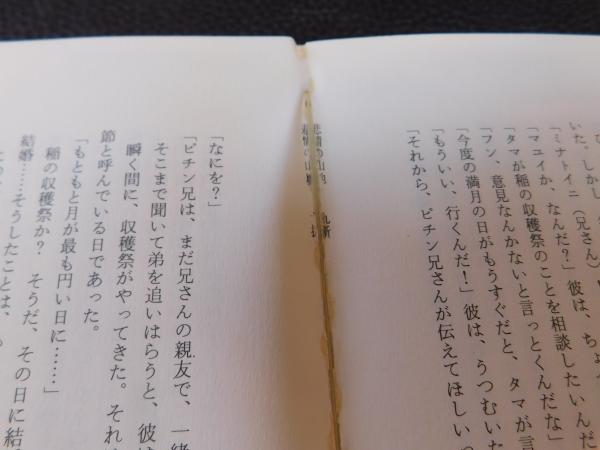 いた。しかし
「ミナトイニ（兄さん）
「マユイか、なんだ？」彼は、ちょ
「タマが稲の収穫祭のことを相談したいんだ
「フン、意見なんかないと言っとくんだな」
「今度の満月の日がもうすぐだと、タマが言
「もういい、行くんだ！」彼は、うつむいた
「それから、ビチン兄さんが伝えてほしいっ
悲情の山地
「なにを？」
「ビチン兄は、まだ兄さんの親友で、一緒
そこまで聞いて弟を追いはらうと、彼は
瞬く間に、収穫祭がやってきた。それ
節と呼んでいる日であった。
「もともと月が最も円い日に……」
稲の収穫祭か？　そうだ、その日に結
結婚……そうしたことは、